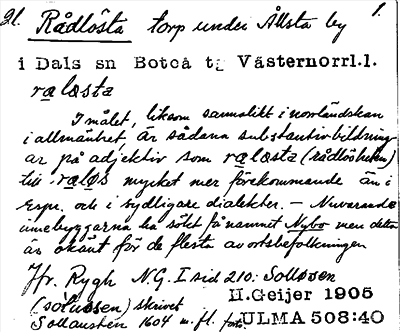 21. Rådlösta torp under Ållsta by 1.
i Dals sn Boteå tg Västernorrl.l.
ralæsta
I målet, liksom sannolikt i norrländskan
i allmänhet, är sådana substantivbildning
ar på adjektiv som ralæsta (rådlösheten)
till raløs mycket mer förekommande än i
Espr. och i sydligare dialekter. – Nuvarande
innebyggarna ha sökt få namnet Nybo men detta
är okänt för de flesta av ortsbefolkningen
Jfr. Rygh N.G. I sid 210: Solløsen
(solusen) skrivet H.Geijer 1905
Sollausten 1604 m.fl. ULMA 508:40